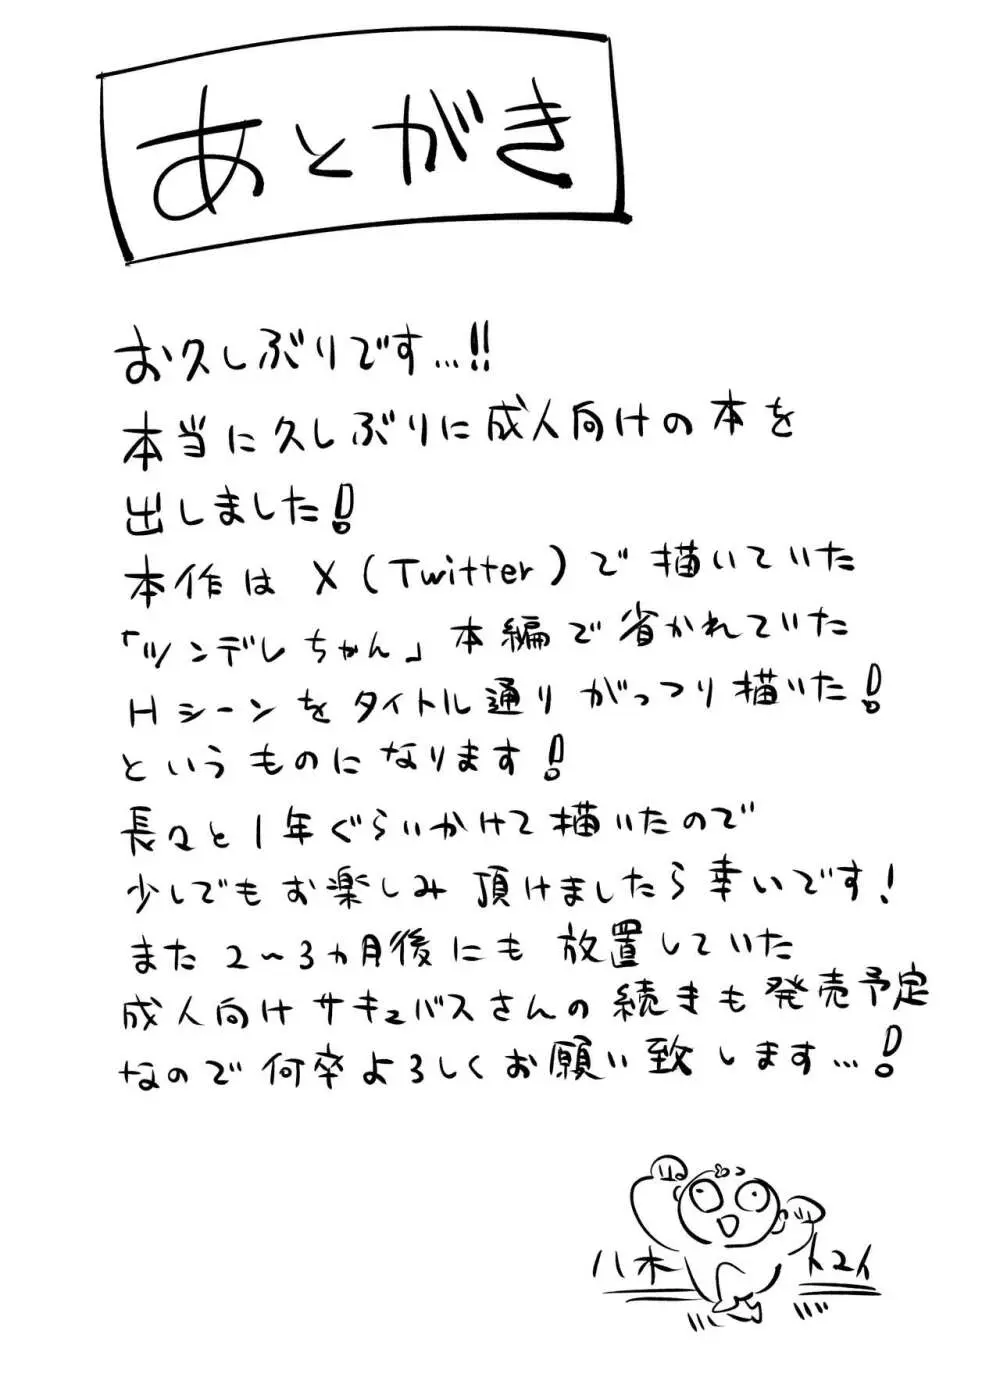 あとがき
お久しぶりです…!!
本当に久しぶりに成人向けの本を
出しました!
本作は X(Twitter)で描いていた
「ツンデレちゃん」本編で省かれていた
Hシーンをタイトル通りがっつり描いた!
というものになります!
長々と1年ぐらいかけて描いたので
少しでもお楽しみ頂けましたら幸いです!
また2〜3カ月後にも放置していた
成人向けサキュバスさんの続きも発売予定
なので何卒よろしくお願い致します…!
八木